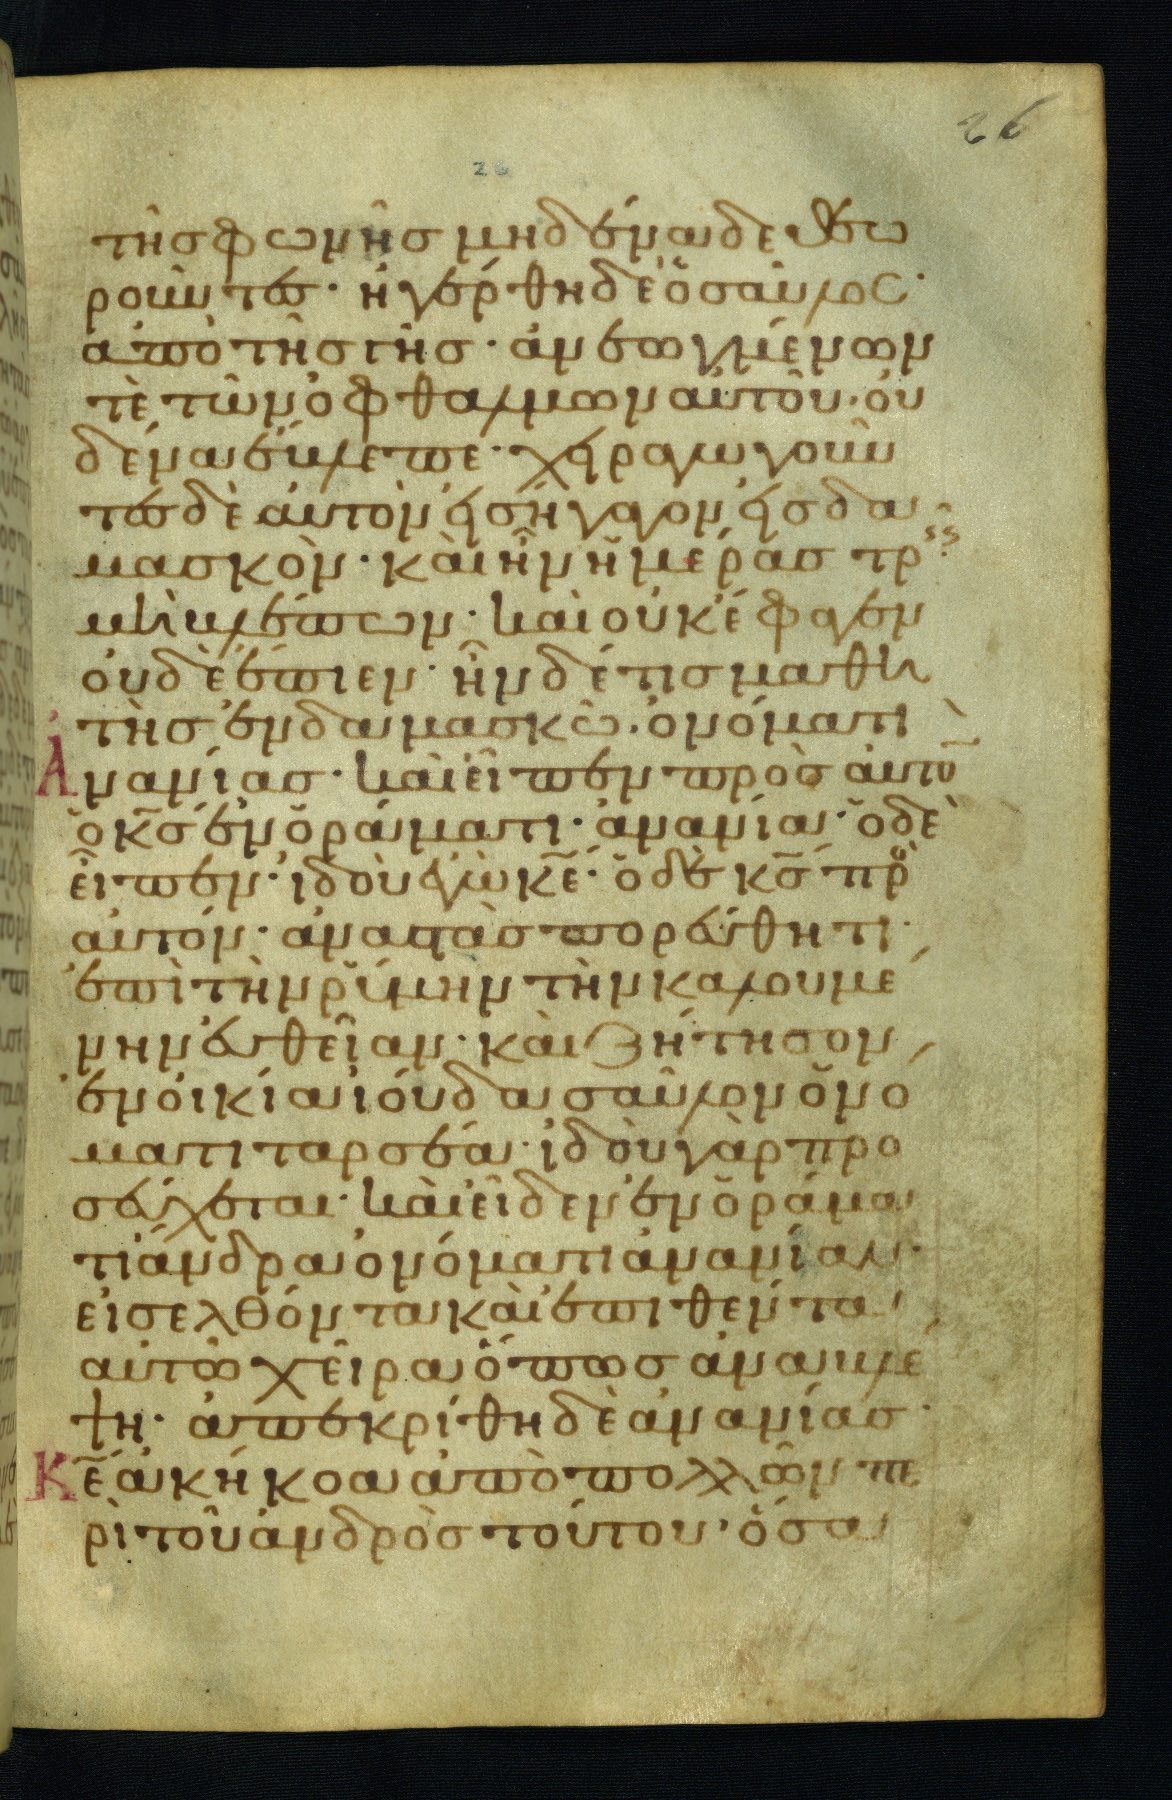 26
26
τῆσ φωνῆσ μηδένα δε θεω
ροῦντεσ· ἠγέρθη δὲ ὁ σαῦλοσ·
ἀπὸ τῆσ γῆσ· ἀνεωγμένων
τὲ τῶν ὀφθαλμων αὐτοῦ· οὐ
δένα ἔβλεπε· χειραγωγοῦν
τεσ δὲ αὐτὸν εἰσήγαγον εἰσ δα
μασκὸν· καὶ ἦν ἡμέρασ τρεῖσ
μὴ βλέπων· καὶ οὐκ ἔφαγεν
οὐδὲ ἔπιεν· ἦν δέ τισ μαθη
τὴσ ἐν δαμασκῶ· ὀνόματι
Ἀνανίασ· καὶ εἶπεν πρὸσ αὐτὸ̄
ὁ κ̅σ̅ ἐν ὁράματι· ἀνανία· ὁ δὲ
εἶπεν· ἰδοὺ ἐγὼ κ̅ε̅· ὁ δὲ κ̅σ̅ πρὸσ
αὐτόν· ἀναστὰσ πορεύθητι
ἐπὶ τὴν ῥύμην τὴν καλουμέ
νην εὐθεῖαν· καὶ ζήτησον
ἐν οἰκία ἰούδα σαῦλον ὀνό
ματι ταρσέα· ἰδοὺ γὰρ προ
σεύχεται· καὶ εἶδεν ἐν ὁράμα
τι ἄνδρα ὀνόματι ἀνανίαν·
εἰσελθόντα καὶ ἐπιθέντα
αὐτῶ χεῖρα ὅπωσ ἀναβλέ
ψη· ἀπεκρίθη δὲ ἀνανίασ·
Κ̅ε̅ ἀκήκοα ἀπὸ πολλῶν πε
ρὶ τοῦ ἀνδρὸσ τούτου· ὅσα